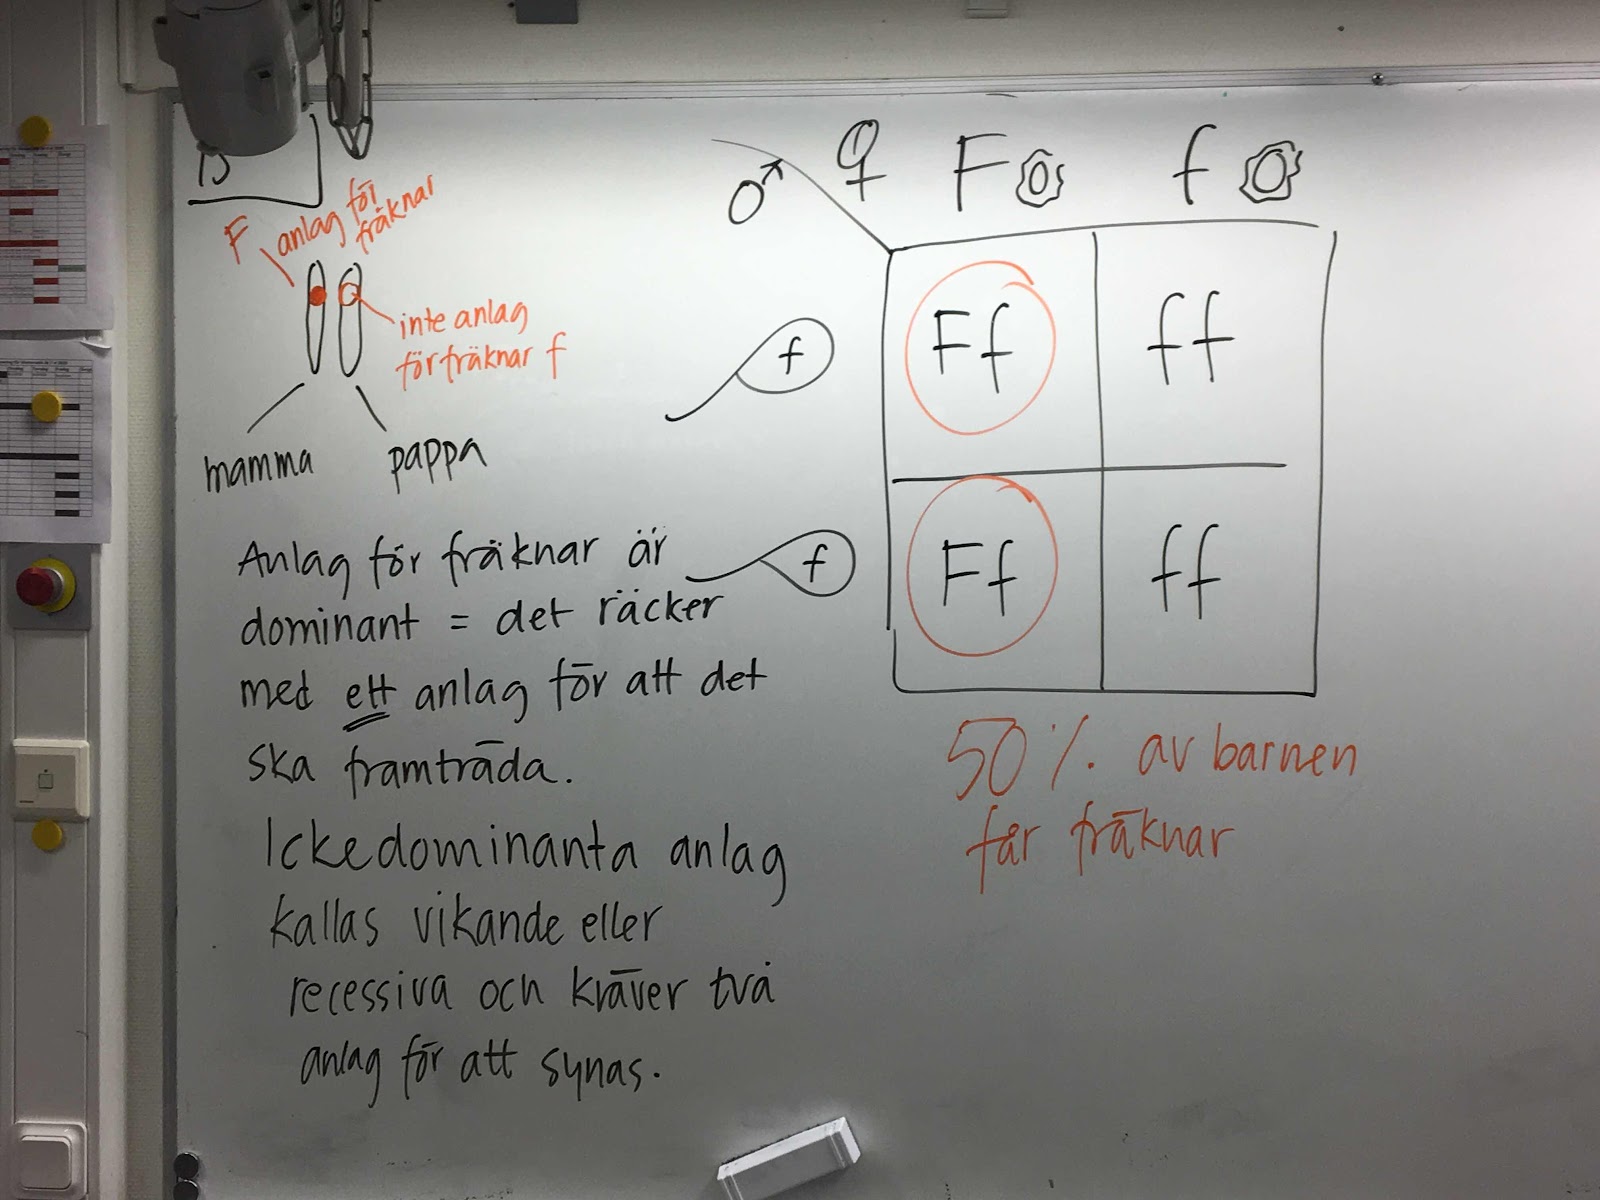 F anlag för
fräknar
inte anlag
för fräknar f
mamma pappa
Anlag för fräknar är
dominant = det räcker
med ett anlag för att det
ska framträda.
Ickedominanta anlag
kallas vikande eller
recessiva och kräver två
anlag för att synas.
♂ ♀ F f
f Ff ff
f Ff ff
50% av barnen
får fräknar